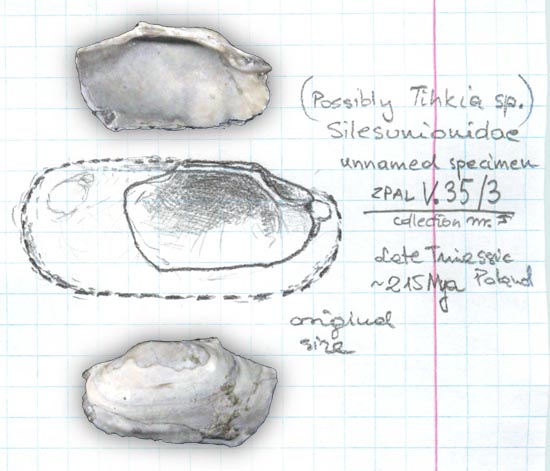 (Possibly Tihkia sp.)
Silesunionidae
unnamed specimen
ZPAL V.35/3
collection nr.
Late Triassic
~215 Mya Poland
original
size